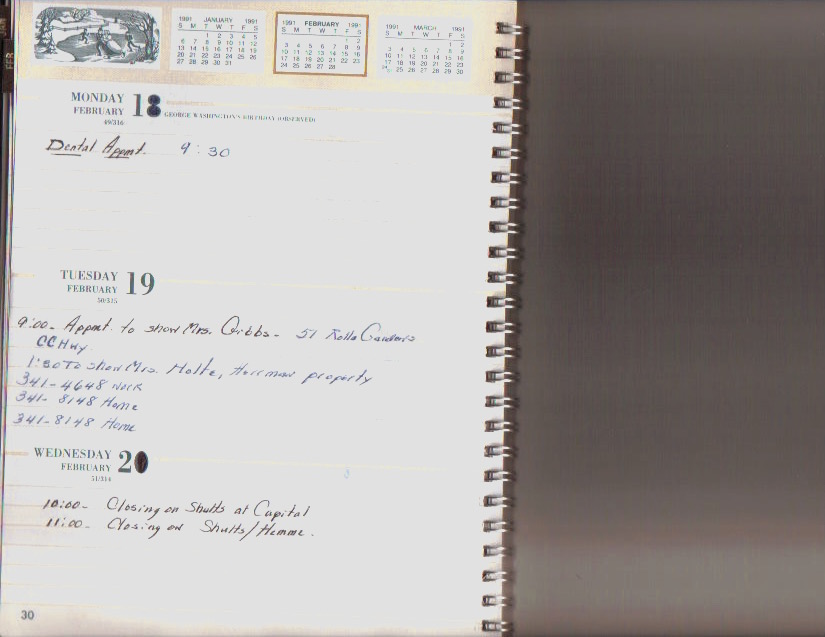 1991 JANUARY 1991
S M T W T F S
1 2 3 4 5
6 7 8 9 10 11 12
13 14 15 16 17 18 19
20 21 22 23 24 25 26
27 28 29 30 31
1991 FEBRUARY 1991
S M T W T F S
1 2
3 4 5 6 7 8 9
10 11 12 13 14 15 16
17 18 19 20 21 22 23
24 25 26 27 28
1991 MARCH 1991
S M T W T F S
1 2
3 4 5 6 7 8 9
10 11 12 13 14 15 16
17 18 19 20 21 22 23
25 26 27 28 29 30
FEB
MONDAY 18
FEBRUARY
49/316
GEORGE WASHINGTON'S BIRTHDAY (OBSERVED)
Dental Appmt. 9:30
TUESDAY 19
FEBRUARY
50/315
9:00- Appmt. to show Mrs. Gibbs- 51 Rolla Gardens
CC Hwy
1:30 To show Mrs. Holte, Herrman property
341-4648 Work
341-8148 Home
341-8148 Home
WEDNESDAY 20
FEBRUARY
51/314
10:00- Closing on Shults at Capital
11:00- Closing on Shults/Hemme.
30